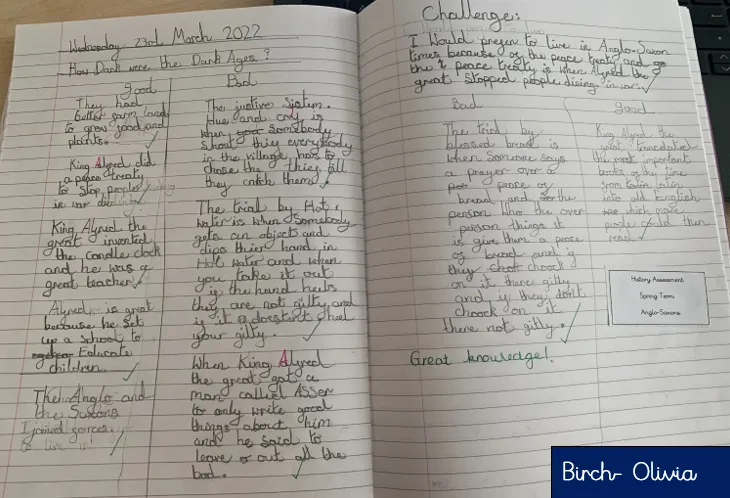 Wednesday 23rd March 2022
How Dark were the Dark Ages?
Good
They had
better farm land
to grow food and
plants.
King Alfred did
a peace treaty
to stop people
in war
King Alfred the
great invented
the candle clock
and he was a
great teacher
Alfred is great
because he set
up a school to
Educate
children.
The Anglo and
the Saxons
joined forces
to live
Bad
The justive System.
Hue and cry is
when somebody
shout thief everybody
in the village has to
chase the thief till
they catch them
The trial by Hot
water is when Somebody
gets an object and
dips thier hand in
Hot water and when
you take it out
if the hand heels
they are not gilty and
if it doesn't heel
your gilty.
When King Alfred
the great got a
man called ASSer
to only write good
things about him
and he Said to
leave or out all the
bad.
Challenge:
I Would prefer to live in Anglo-Saxon
times because of the peace treaty and
the peace treaty is when Alfred the
great Stopped people dieing in war.
Bad
The trial by
blessed bread is
when Someone says
a prayer over a
peace of
bread and the
person who the over
person things it
is give them a peace
of bread and if
they choock
on it there gilty
and if they don't
choock on it
there not gilty.
Great knowledge!
Good
King Alfred the
great translated
the most important
books of by time
from latin
into old English
which more
people could then
read
History Assessment
Spring Term
Anglo-Saxons
Birch- Olivia